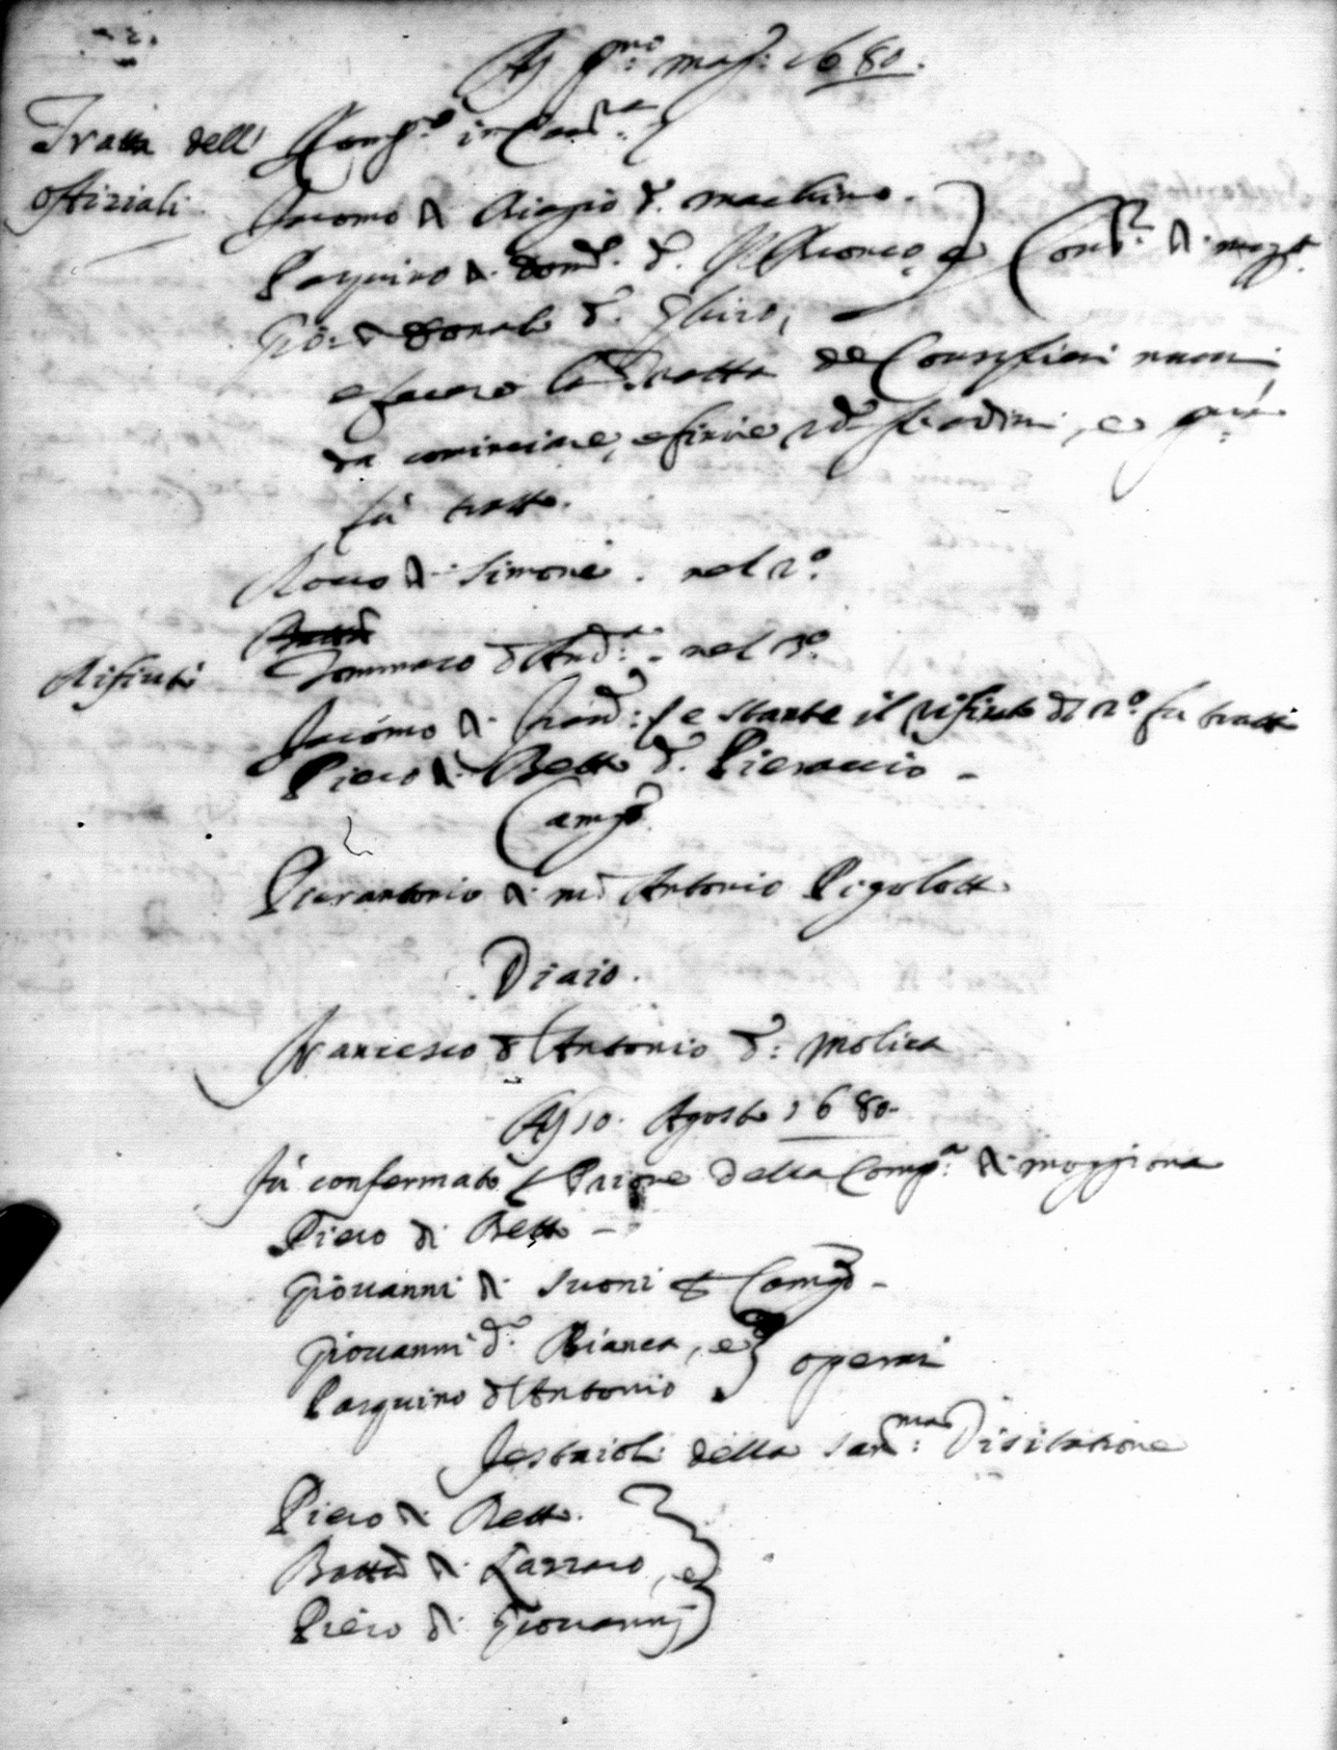 A dì pmo mag: 1680.
Tratta dell'
offiziali
Cong.to in Cam.ra
Jacomo di Biagio d. Macchino.
Pasquino di Dom.co d.
Gio: di Donato d. Ghiro,
Cons.ri di mag.a
e fecero la tratta de Consiglieri nuovi
da cominciare, e finire
fu tratto.
Rocco di Simone. nel 2º
Tommaso d'And.a - nel 3º
Rifiuti
Jacomo di Fran.co: e stante il rifiuto di 2º fu tratto
Piero di Betto d. Pieraccio -
Camgo
Pierantonio di m. Antonio Pigolotti
Viaio.
Francesco d'Antonio d: Molica
A dì 10. Agosto 1680.
Fu confermato p Priore della Comp.a di Moggiona
Piero di Betto -
Giovanni di Suoni p Camgo -
Giovanni d. Bianca, e
Pasquino d'Antonio
operai
Festaioli della San.ma Visitatione
Piero di Betto.
Batta di Lazzaro, e
Piero di Giovanni